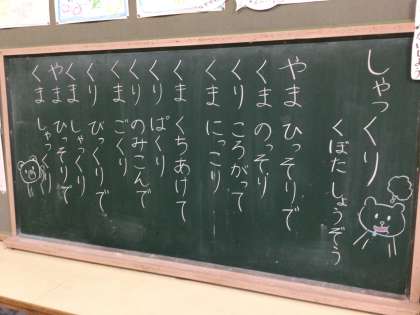 しゃっくり
くぼた しょうぞう
やま ひっそりで
くま のっそり
くり ころがって
くま にっこり
くま くちあけて
くり ぱくり
くり のみこんで
くま ごくり
くり びっくりで
くま しゃっくり
やま ひっそりで
くま しゃっくり